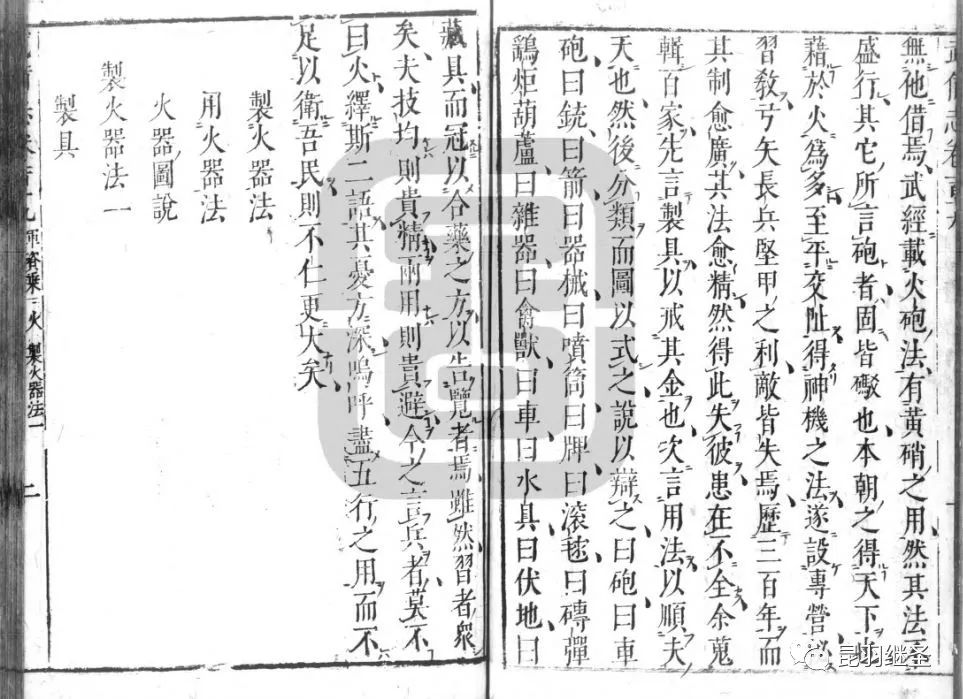 無他借焉武經載火砲法有黃硝之用然其法
盛行其它所言砲者固皆礮也本朝之得天下
藉於火爲多至平交趾得神機之法遂設專營
習敎弓矢長兵堅甲之利敵皆失焉歷三百年而
其制愈廣其法愈精然得此失彼患在不全余蒐
輯百家先言製具以戒其金也次言用法以順夫
天也然後分類而圖以式之說以辯之曰砲曰車
砲曰銃曰箭曰器械曰噴筒曰牌曰滾毬曰磚彈
鷂炬葫蘆曰雜器曰禽獸曰車曰水具曰伏地曰
藏具而冠以合藥之方以告覽者焉雖然習者衆
矣夫技均則貴精兩用則貴避今之言兵者莫不
曰火繹斯二語其憂方深嗚呼盡五行之用而不
足以衛吾民則不仁更大矣
製火器法
用火器法
火器圖說
製火器法一
製具
火 製火器法一
二
昆羽继圣